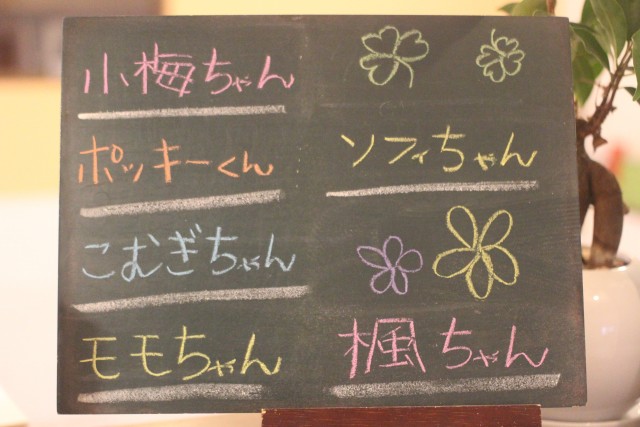 小梅ちゃん
ポッキーくん
こむぎちゃん
モモちゃん
ソフィちゃん
楓ちゃん